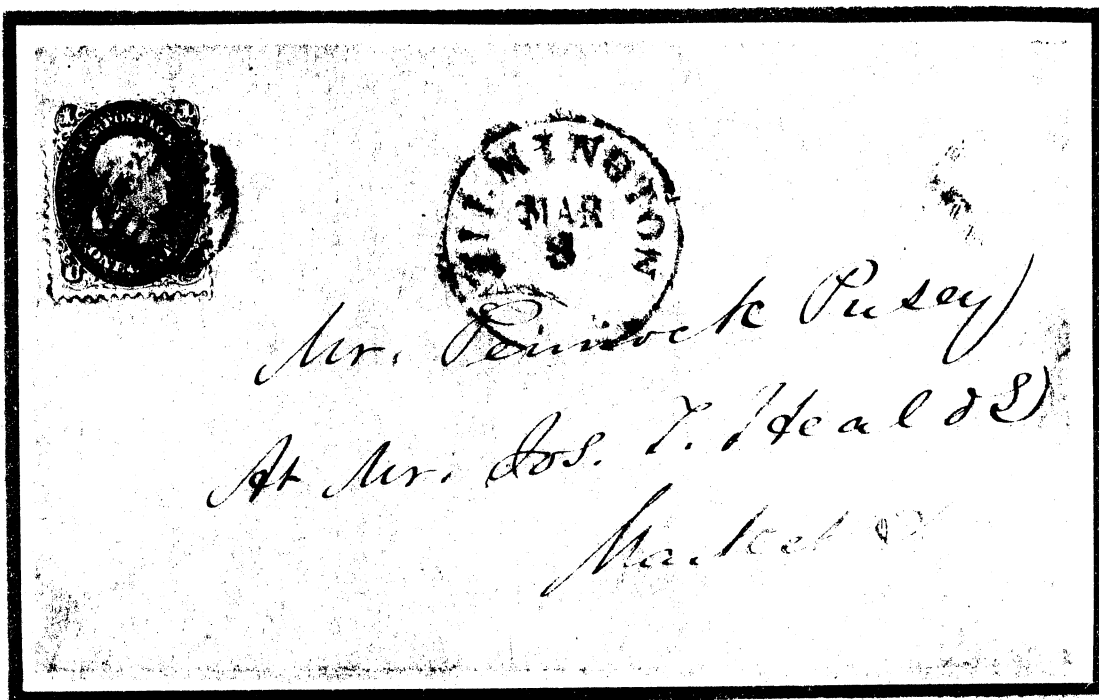 U.S. POSTAGE
ONE CENT
WILMINGTON
MAR
8
Mr. Pennock Pusey
At Mr. Jos. T. Heald's
Market St